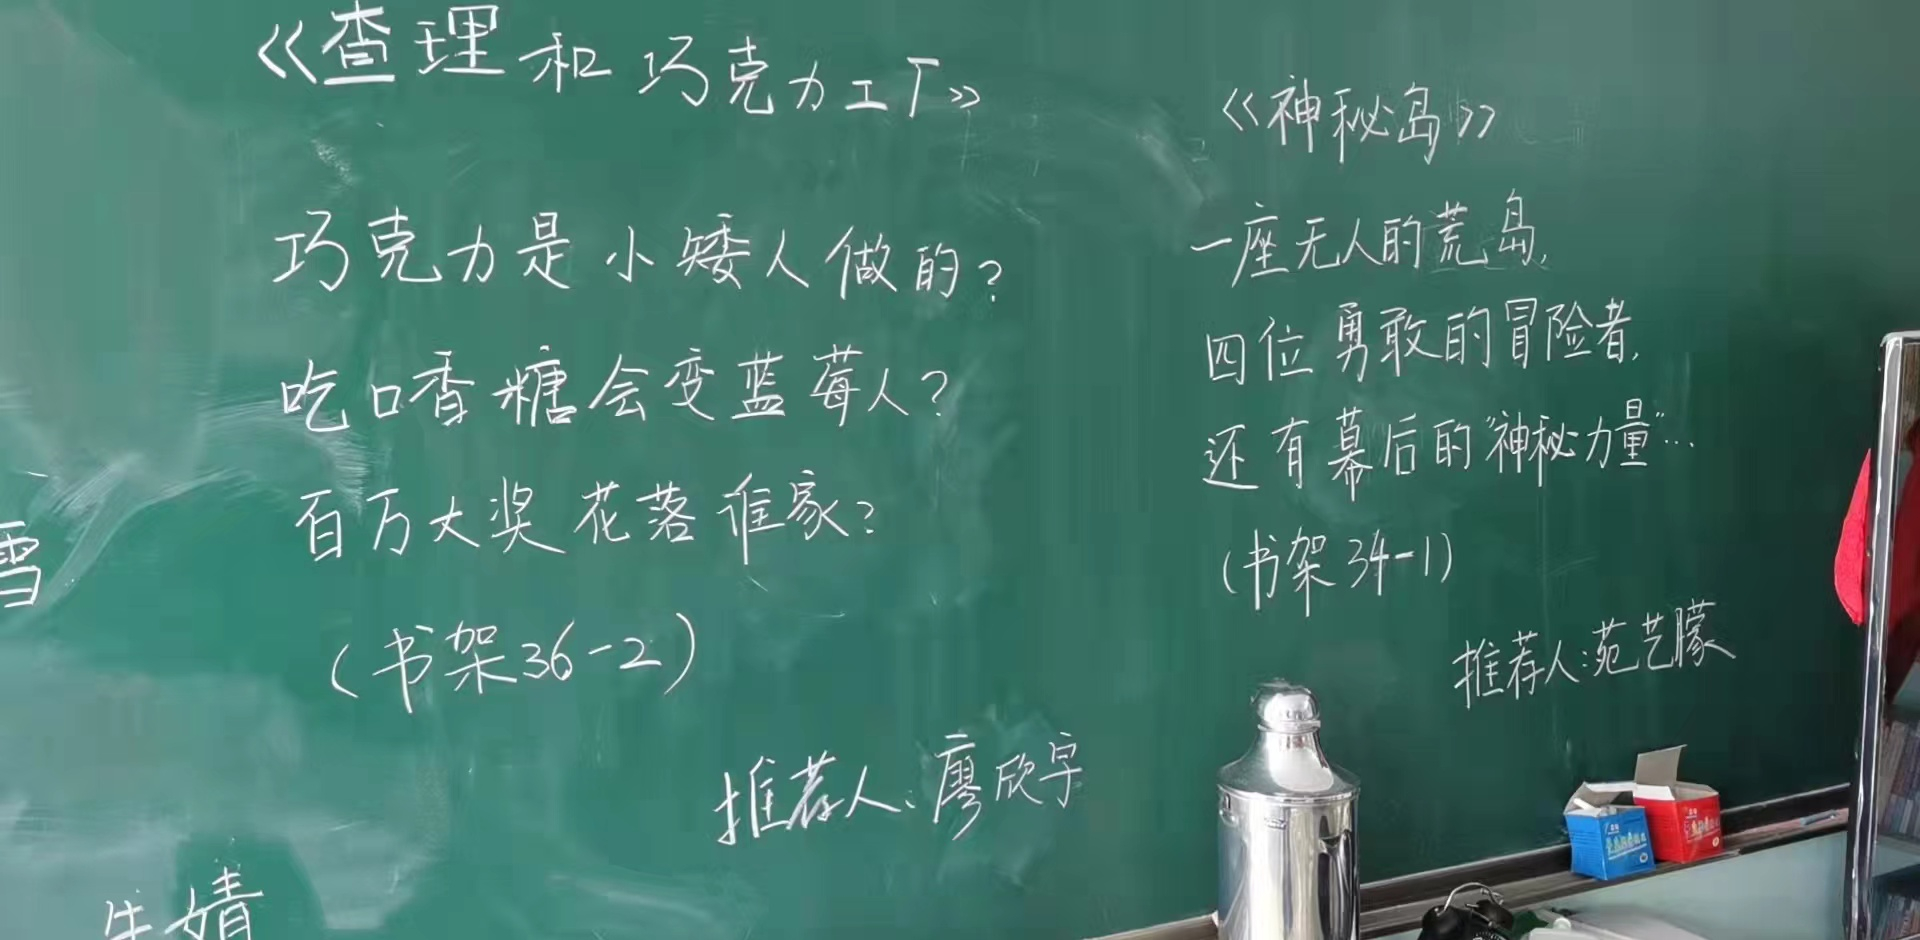 《查理和巧克力工厂》
巧克力是小矮人做的?
吃口香糖会变蓝莓人?
百万大奖花落谁家?
(书架36-2)
推荐人:廖欣宇
《神秘岛》
一座无人的荒岛,
四位勇敢的冒险者,
还有幕后的"神秘力量"...
(书架34-1)
推荐人:苑艺朦
雪
婧